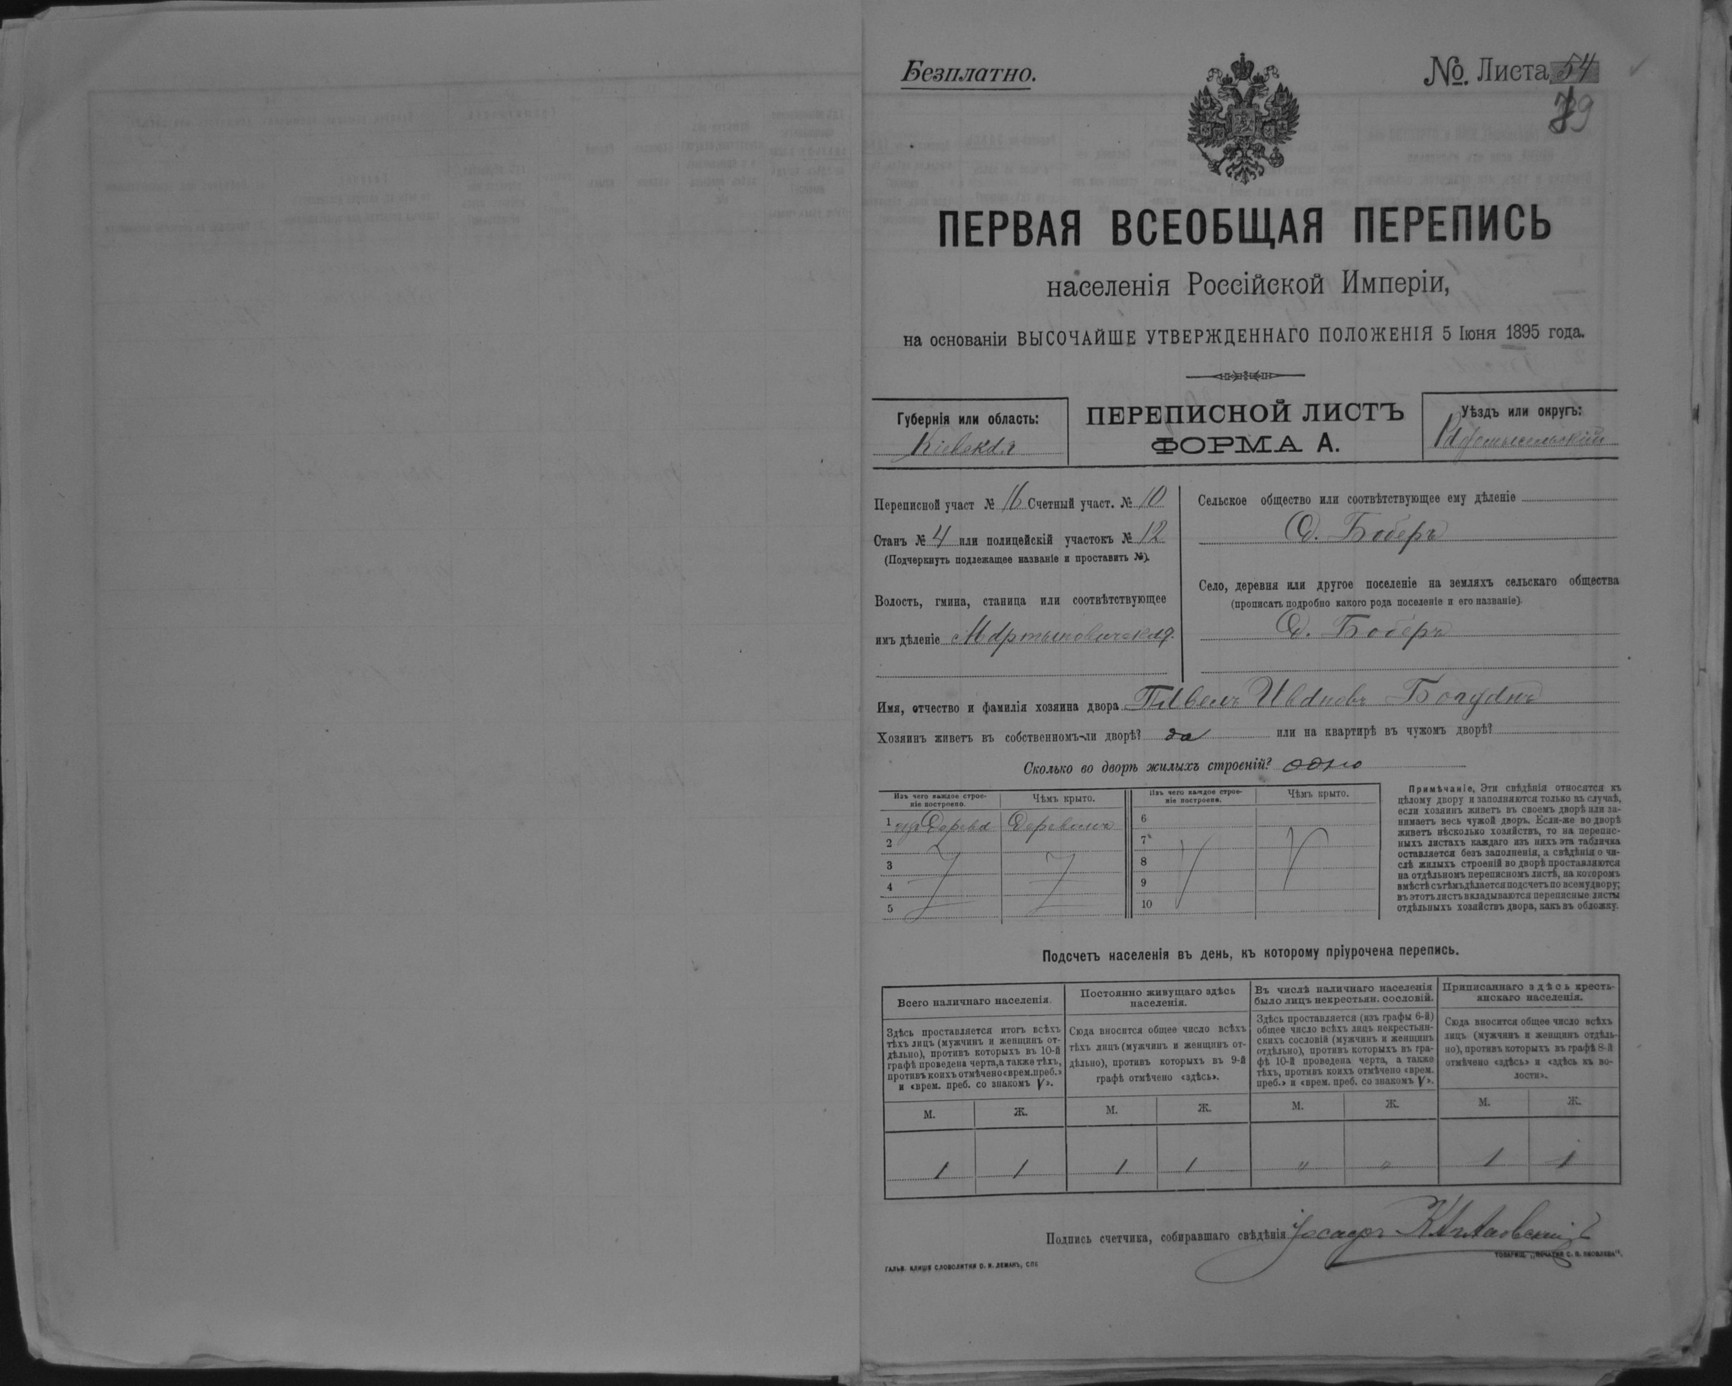 Безплатно.
№ Листа 54
39
ПЕРВАЯ ВСЕОБЩАЯ ПЕРЕПИСЬ
населенія Россійской Имперіи,
на основаніи ВЫСОЧАЙШЕ УТВЕРЖДЕННАГО ПОЛОЖЕНІЯ 5 Іюня 1895 года.
Губернія или область:
Кіевская
ПЕРЕПИСНОЙ ЛИСТЪ
ФОРМА А.
Уѣздъ или округъ:
Радомысльскій
Переписной участ № 16 Счетный участ. № 10
Станъ № 4 или полицейскій участокъ № 12
(Подчеркнуть подлежащее названіе и проставить №).
Волость, гмина, станица или соотвѣтствующее
имъ дѣленіе Мартыновичская
Сельское общество или соотвѣтствующее ему дѣленіе
С. Боберъ
Село, деревня или другое поселеніе на земляхъ сельскаго общества
(прописать подробно какого рода поселеніе и его названіе)
С. Боберъ
Имя, отчество и фамилія хозяина двора Павелъ Ивановъ
Хозяинъ живетъ въ собственномъ-ли дворѣ? да или на квартирѣ въ чужомъ дворѣ?
Сколько во дворѣ жилыхъ строеній? одно
Изъ чего каждое строе-
ніе построено.
Чѣмъ крыто.
Изъ чего каждое строе-
ніе построено.
Чѣмъ крыто.
1 изъ Дерева Деревомъ
2
3
4
5
6
7
8
9
10
Примѣчаніе. Эти свѣдѣнія относятся къ
цѣлому двору и заполняются только въ случаѣ,
если хозяинъ живетъ въ своемъ дворѣ или за-
нимаетъ весь чужой дворъ. Если-же во дворѣ
живетъ нѣсколько хозяйствъ, то на перепис-
ныхъ листахъ каждаго изъ нихъ эта табличка
оставляется безъ заполненія, а свѣдѣнія о чи-
слѣ жилыхъ строеній во дворѣ проставляются
на отдѣльномъ переписномъ листѣ, на которомъ
вмѣстѣ съ тѣмъ дѣлается подсчетъ по всему двору;
въ этотъ листъ вкладываются переписные листы
отдѣльныхъ хозяйствъ двора, какъ въ обложку.
Подсчетъ населенія въ день, къ которому пріурочена перепись.
Всего наличнаго населенія.
Здѣсь проставляется итогъ всѣхъ
тѣхъ лицъ (мужчинъ и женщинъ от-
дѣльно), противъ которыхъ въ 10-й
графѣ проведена черта, а также тѣхъ,
противъ коихъ отмѣчено «врем. преб.»
и «врем. преб. со знакомъ V».
Постоянно живущаго здѣсь
населенія.
Сюда вносится общее число всѣхъ
тѣхъ лицъ (мужчинъ и женщинъ от-
дѣльно), противъ которыхъ въ 9-й
графѣ отмѣчено «здѣсь».
Въ числѣ наличнаго населенія
было лицъ некрестьян. сословій.
Здѣсь проставляется (изъ графы 6-й)
общее число всѣхъ лицъ некрестьян-
скихъ сословій (мужчинъ и женщинъ
отдѣльно), противъ которыхъ въ гра-
фѣ 10-й проведена черта, а также
тѣхъ, противъ коихъ отмѣчено «врем.
преб.» и «врем. преб. со знакомъ V».
Приписаннаго здѣсь кресть-
янскаго населенія.
Сюда вносится общее число всѣхъ
лицъ (мужчинъ и женщинъ отдѣль-
но), противъ которыхъ въ графѣ 8-й
отмѣчено «здѣсь» и «здѣсь къ во-
лости».
М. Ж. М. Ж. М. Ж. М. Ж.
1 1 1 1 " " 1 1
Подпись счетчика, собиравшаго свѣдѣнія
ГАЛЬВ. КЛИШЕ СЛОВОЛИТНИ О. И. ЛЕМАНЪ, СПБ
ТОВАРИЩ. „ПЕЧАТНЯ С. П. ЯКОВЛЕВА".